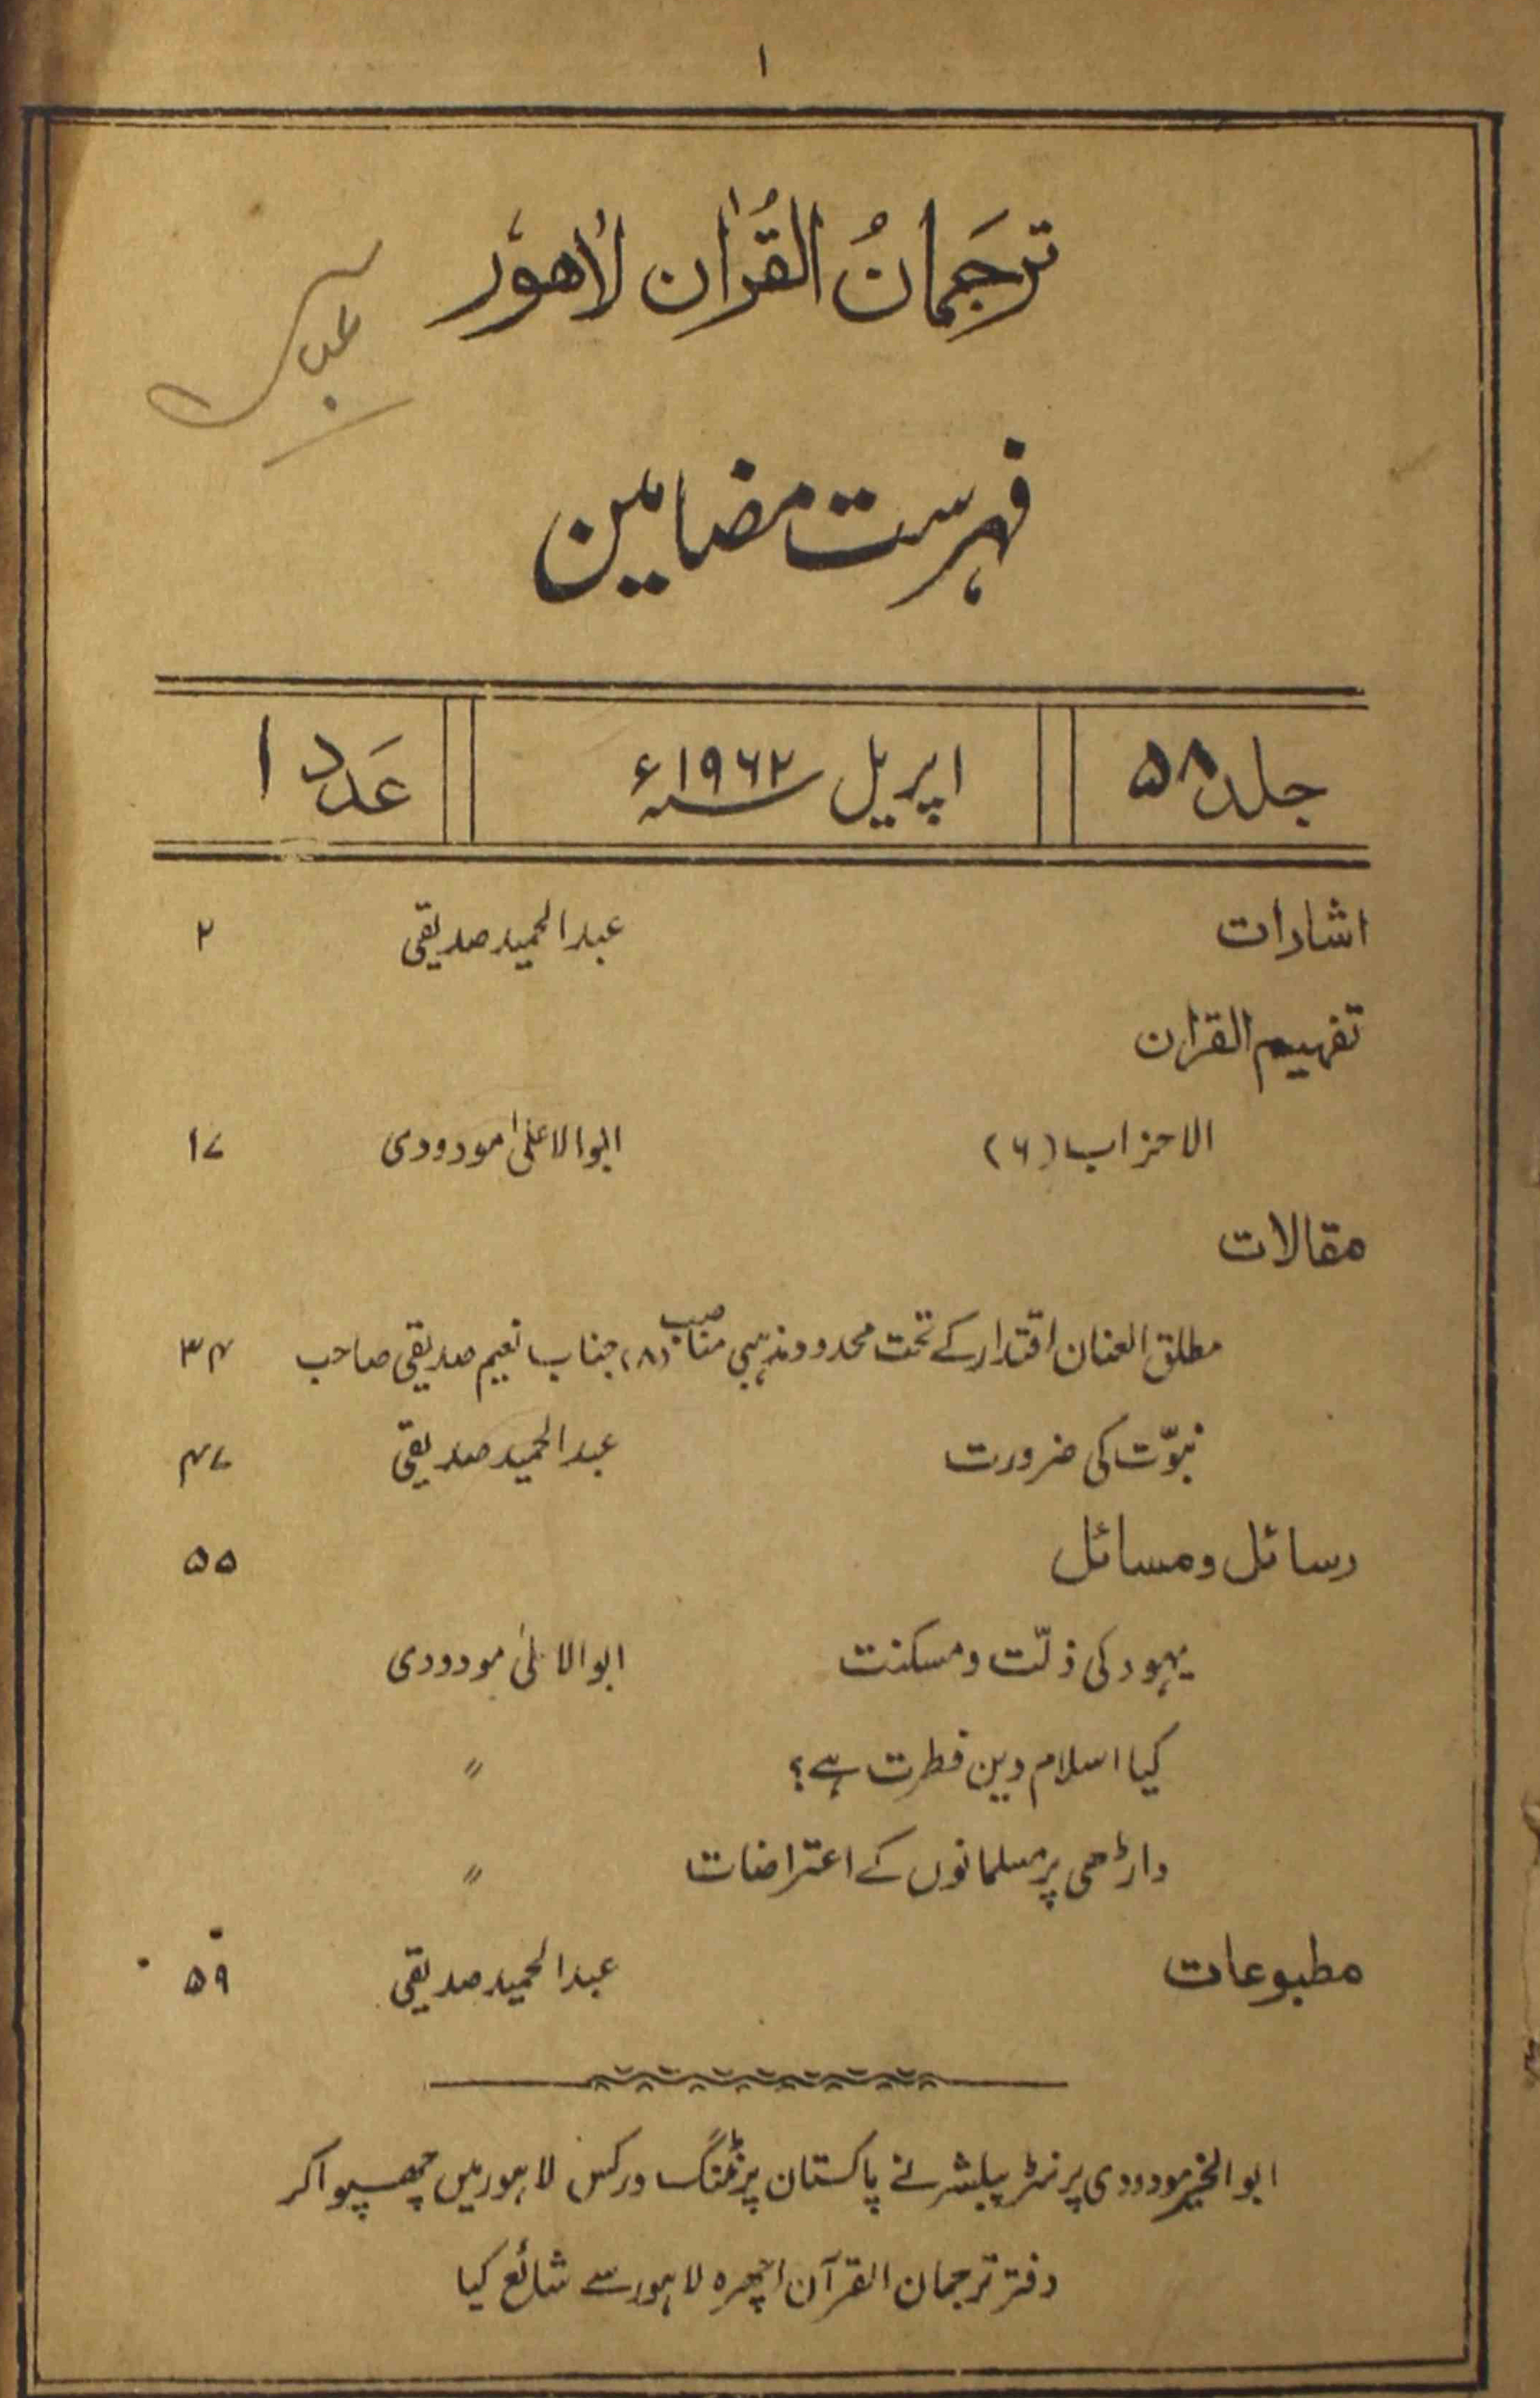 ۱
ترجَمانُ القُرآن لاھور
فہرست مضامین
جلد ۵۸ اپریل ۱۹۶۲ء عَدد ۱
اشارات عبدالحمید صدیقی ۲
تفہیم القرآن
الاحزاب (۶) ابوالاعلیٰ مودودی ۱۷
مقالات
مطلق العنان اقتدار کے تحت محدود مذہبی مناصب (۸) جناب نعیم صدیقی صاحب ۳۴
نبوّت کی ضرورت عبدالحمید صدیقی ۴۷
رسائل و مسائل ۵۵
یہود کی ذلّت و مسکنت ابوالاعلیٰ مودودی
کیا اسلام دین فطرت ہے؟ "
داڑھی پر مسلمانوں کے اعتراضات "
مطبوعات عبدالحمید صدیقی ۵۹
ابوالخیر مودودی پرنٹر پبلشر نے پاکستان پرنٹنگ ورکس لاہور میں چھپوا کر
دفتر ترجمان القرآن اچھرہ لاہور سے شائع کیا